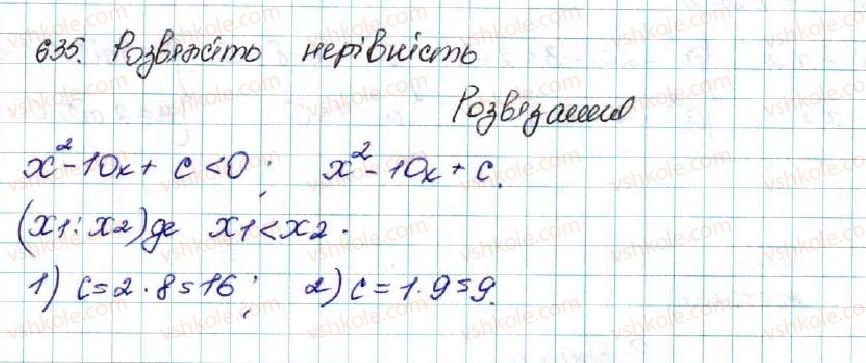 635. Розвяжіть нерівність
Розвязання
x²-10x+ c<0; x²-10x+c.
(x1; x2) де x1<x2.
1) c=2·8=16; 2) c=1·9=9.